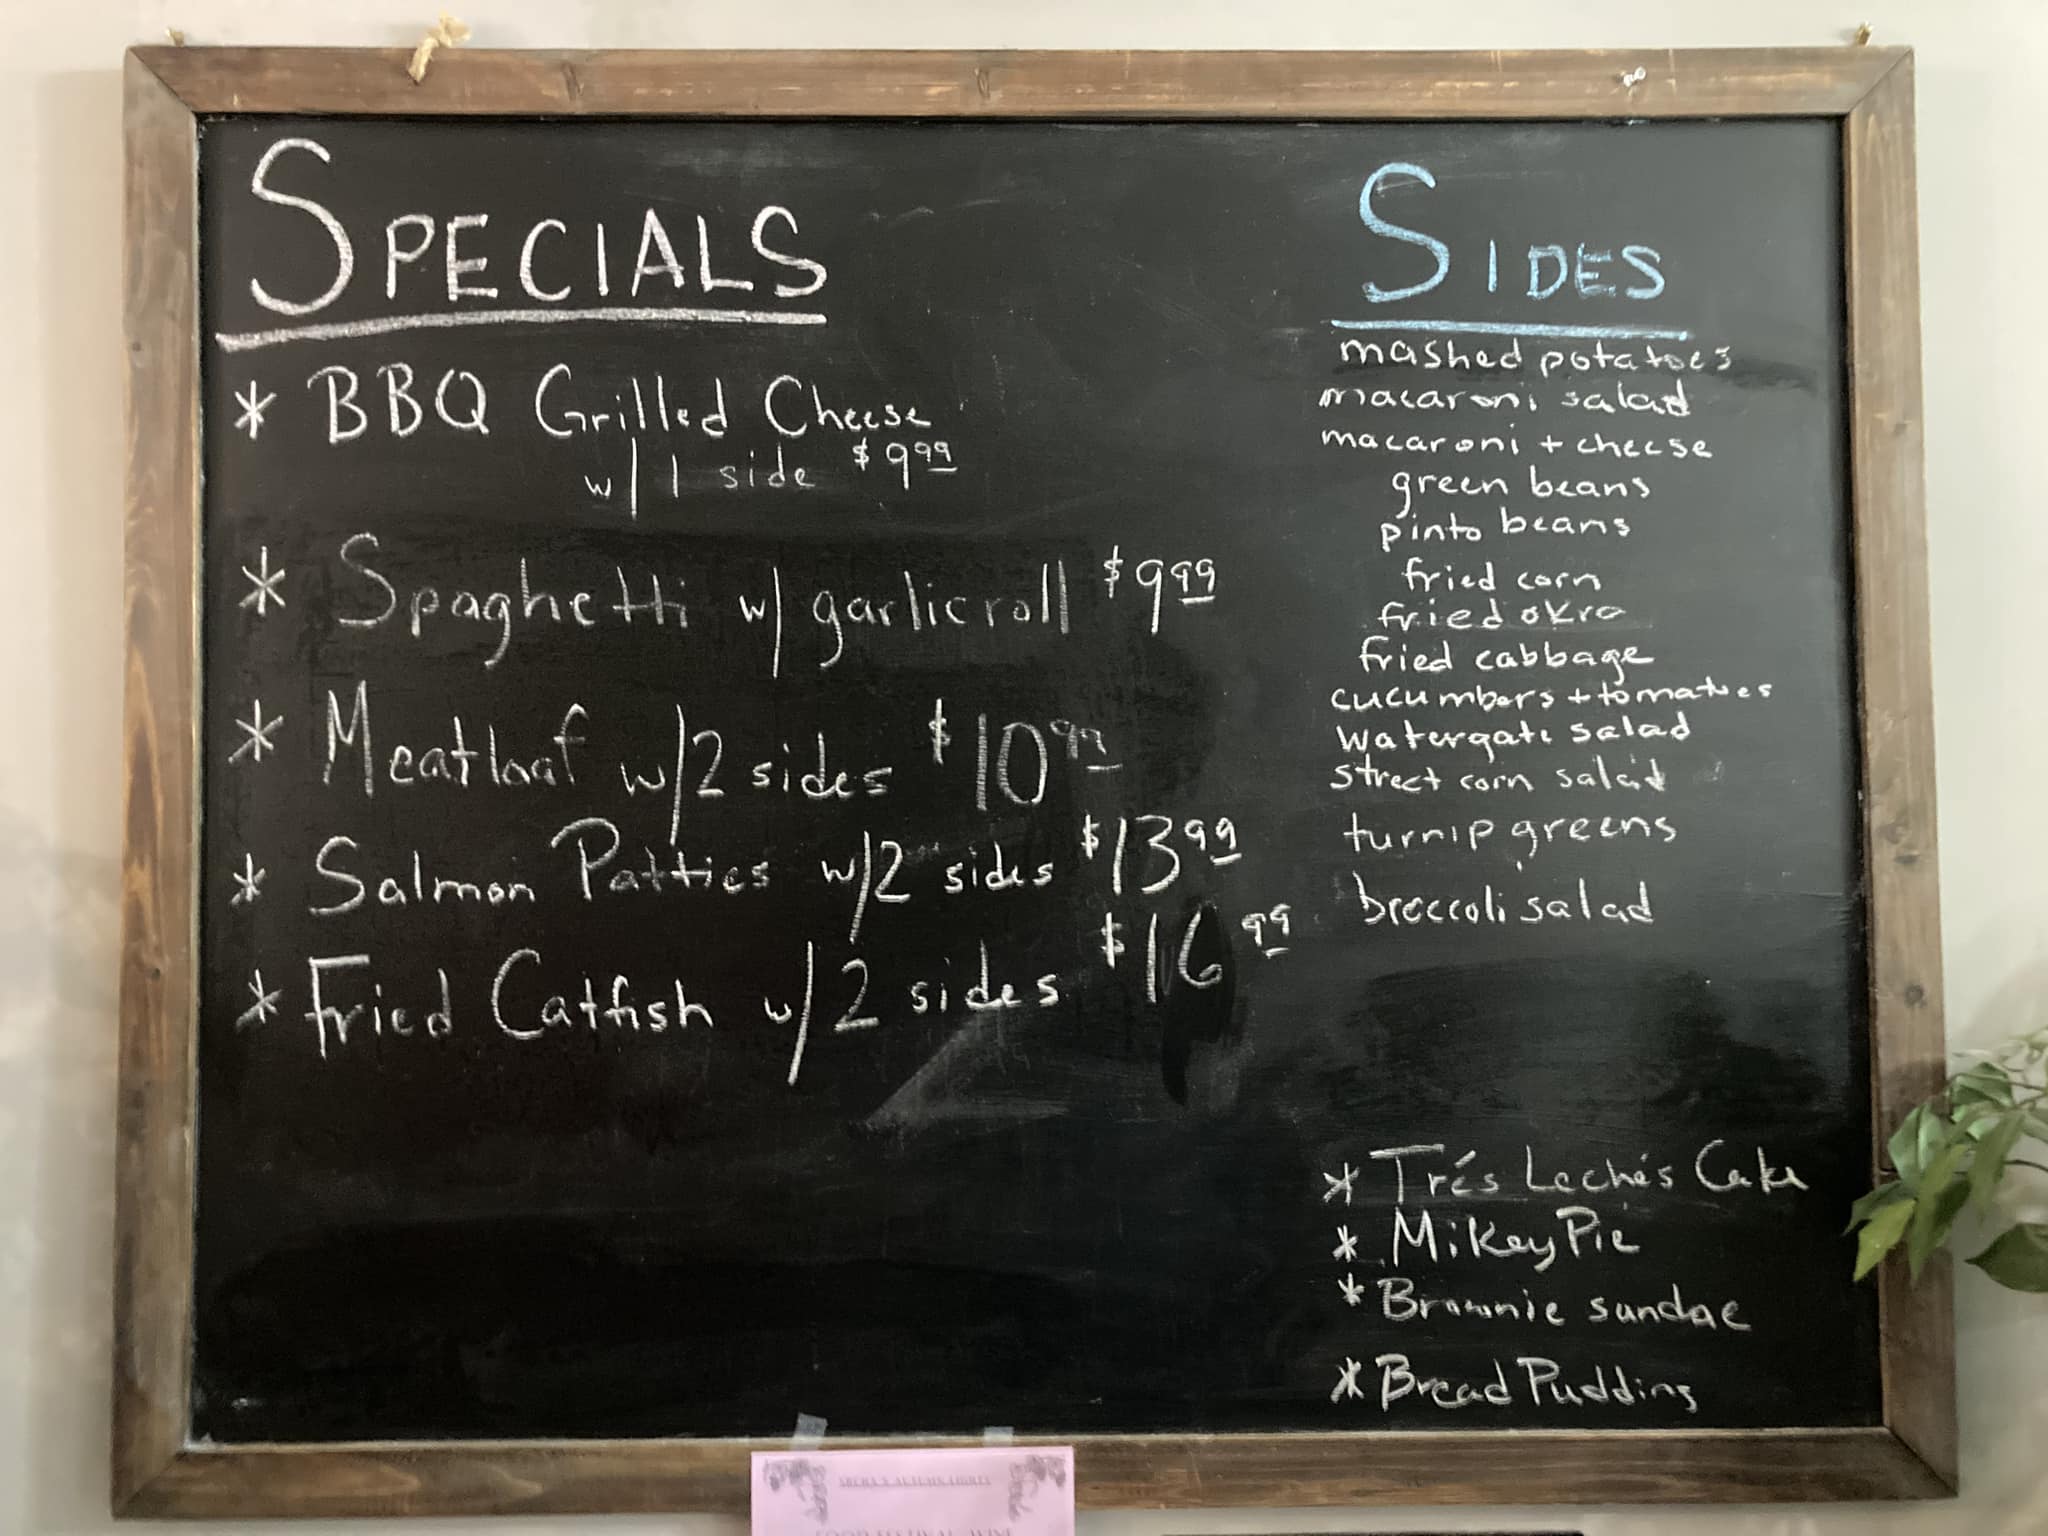 SPECIALS
* BBQ Grilled Cheese
w/ 1 side $9.99
* Spaghetti w/ garlic roll $9.99
* Meatloaf w/2 sides $10.99
* Salmon Patties w/2 sides $13.99
* Fried Catfish w/2 sides $16.99
SIDES
mashed potatoes
macaroni salad
macaroni + cheese
green beans
pinto beans
fried corn
fried okra
fried cabbage
cucumbers + tomatoes
Watergate salad
street corn salad
turnip greens
broccoli salad
* Trés Lechés Cake
* Mikey Pie
* Brownie sundae
* Bread Pudding